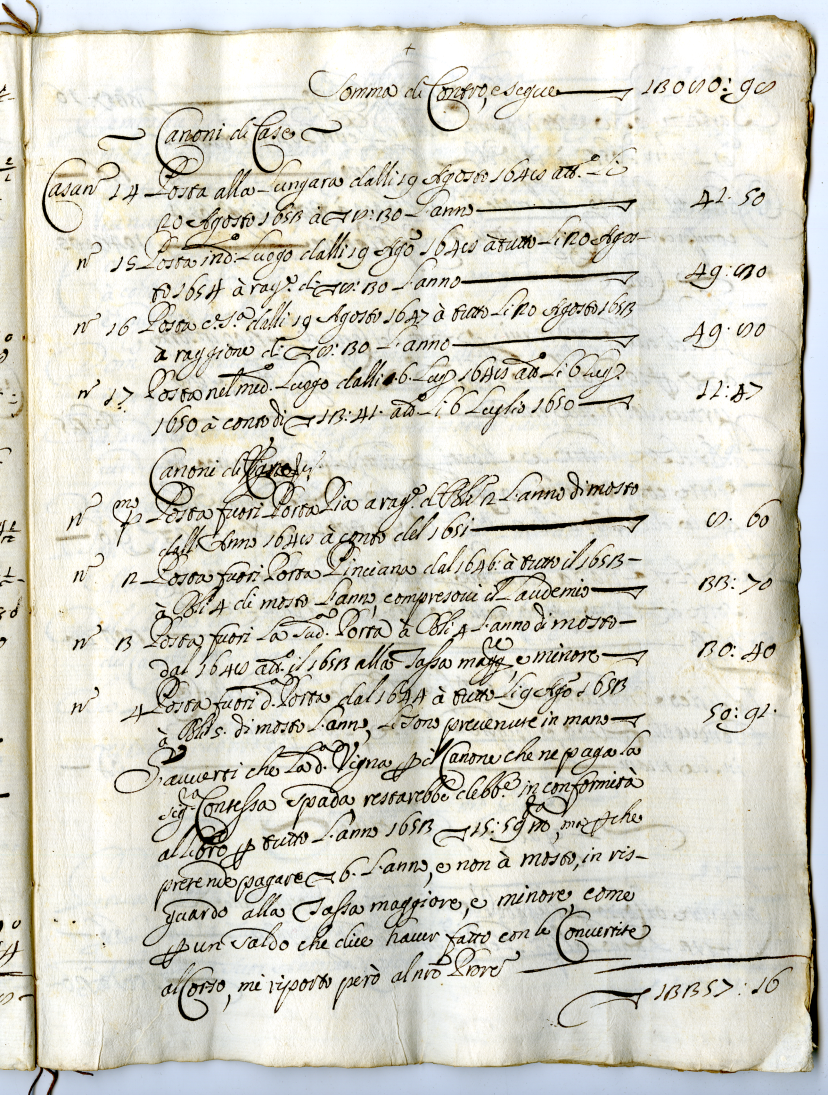 +
Somma di Contro, e segue 13080: 98
Canoni di Case
Casa n.º 14 Posta alla Lungara dalli 19 Agosto 1648 att.º Li
20 Agosto 1653 à 8: 30 L'anno 41. 50
n.º 15 Posta in d.º Luogo dalli 19 Ag.º 1648 à tutto Li 20 Agos-
to 1654 à rag.e di 8: 30 L'anno 49: 80
n.º 16 Posta c.e s.a dalli 19 Agosto 1647 à tutto Li 20 Agosto 1653
à raggione di 8: 30 L'anno 49. 80
n.º 17 Posta nel med.º Luogo dalli 6 Lug.º 1648 att.º Li 6 Lug.º
1650 à conto di 13: 41. att.º Li 6 Luglio 1650 11: 47
Canoni di
n.º p.mo Posta fuori Porta Pia a rag.e di bli 2 L'anno di mosto
dall'Anno 1648 à conto del 1651 8. 60
n.º 2 Posta fuori Porta Pinciana dal 1646: à tutto il 1653-
à bli 4 di mosto L'anno, compresoui il Laudemio 33: 70
n.º 3 Posta fuori La Sud.a Porta à bli 4 L'anno di mosto-
dal 1648 att.º il 1653 alla Tassa magg.re, e minore 30: 40
n.º 4 Posta fuori d.a Porta dal 1644 à tutto Li 9 Ag.º 1653
à bli 5. di mosto L'anno, Li sono preuenute in mano 50: 91.
S'auuerti che La d.a Vigna p il Canone che ne paga la
sig.ra Contessa Spada restarebbe deb.e in conformità
al Libro p tutto L'anno 1653 15: 59 , mà p che
pretende pagare 6. L'anno, e non à mosto, in ris-
guardo alla Tassa maggiore, e minore, come
p un saldo che dice hauer fatto con le Conuertite
al Corso, mi riporto però al nro Prore
13357: 16